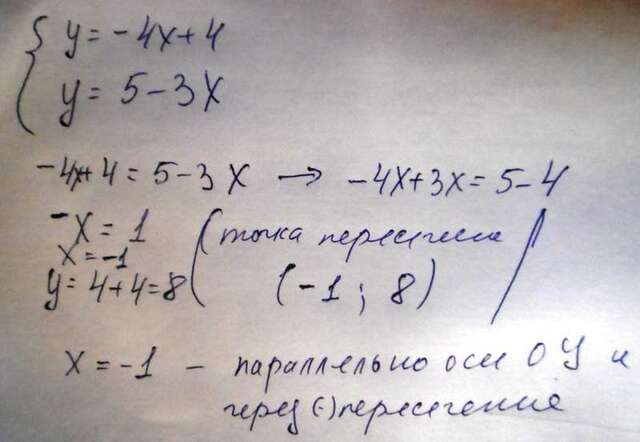 y = -4x+4
y = 5-3x
-4x+4 = 5-3x → -4x+3x = 5-4
-x = 1
x = -1
y = 4+4 = 8
(точка пересечение
(-1; 8)
x = -1 - параллельно оси ОУ и
через (·) пересечение